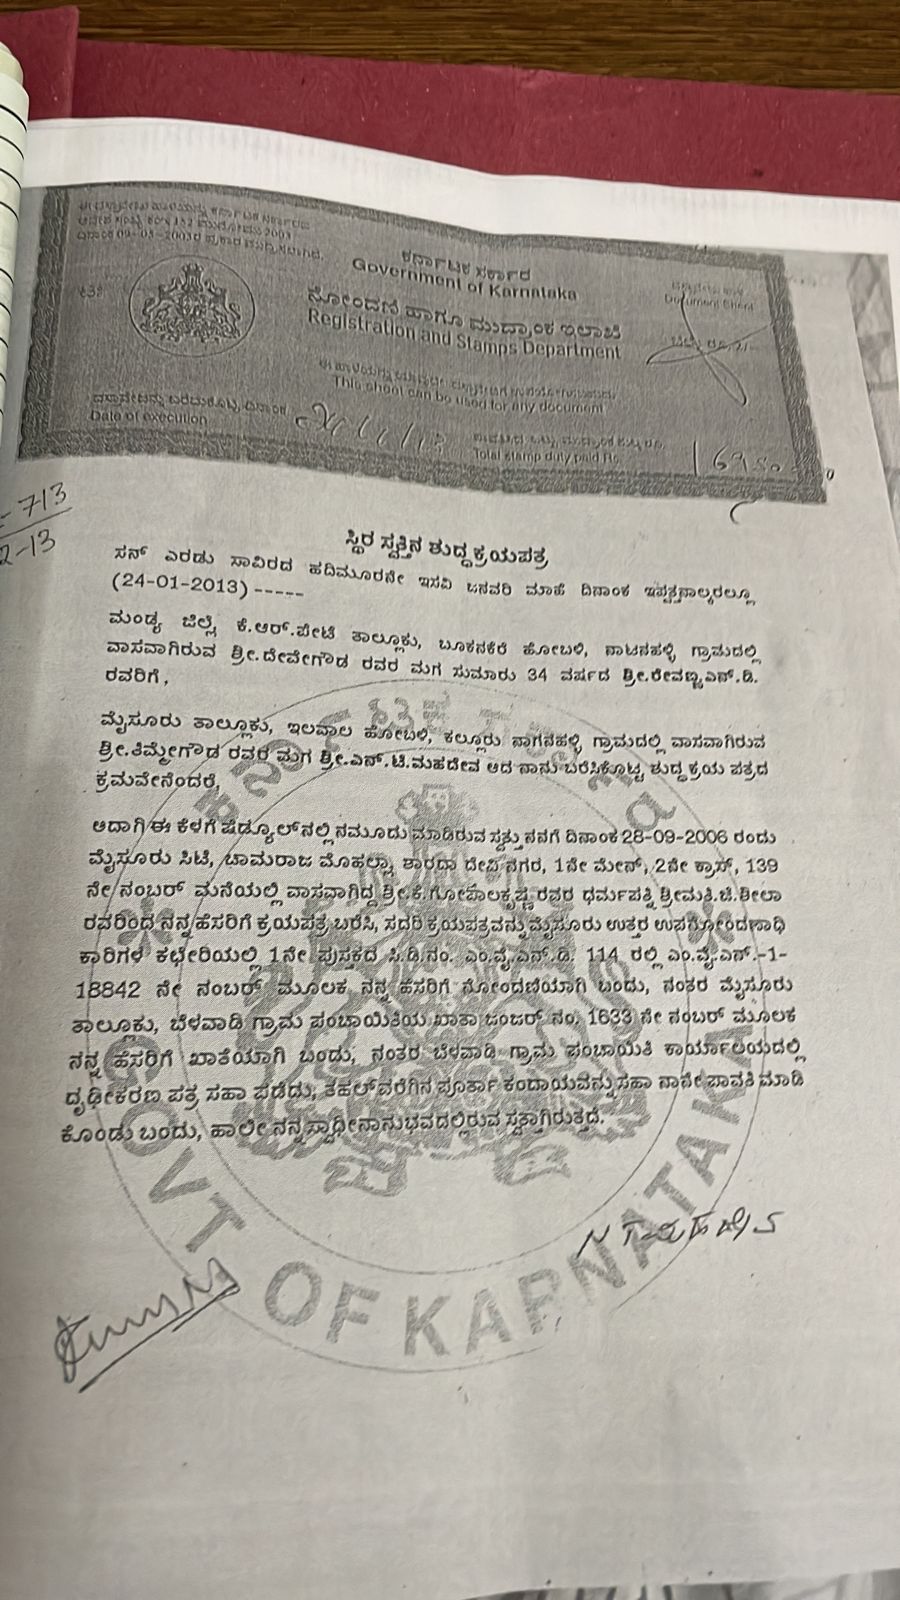 ಕರ್ನಾಟಕ ಸರ್ಕಾರ
Government of Karnataka
ನೋಂದಣಿ ಹಾಗೂ ಮುದ್ರಾಂಕ ಇಲಾಖೆ
Registration and Stamps Department
Document Sheet
This sheet can be used for any document
Date of execution
Total stamp duty paid Rs.
713
2-13
ಸ್ಥಿರ ಸ್ವತ್ತಿನ ಶುದ್ಧಕ್ರಯಪತ್ರ
ಸನ್ ಎರಡು ಸಾವಿರದ ಹದಿಮೂರನೇ ಇಸವಿ ಜನವರಿ ಮಾಹೆ ದಿನಾಂಕ ಇಪ್ಪತ್ತನಾಲ್ಕರಲ್ಲೂ
(24-01-2013) -----
ಮಂಡ್ಯ ಜಿಲ್ಲೆ, ಕೆ.ಆರ್.ಪೇಟೆ ತಾಲ್ಲೂಕು, ಬೂಕನಕೆರೆ ಹೋಬಳಿ, ನಾಟನಹಳ್ಳಿ ಗ್ರಾಮದಲ್ಲಿ
ವಾಸವಾಗಿರುವ ಶ್ರೀ.ದೇವೇಗೌಡ ರವರ ಮಗ ಸುಮಾರು 34 ವರ್ಷದ ಶ್ರೀ.ರೇವಣ್ಣ.ಎನ್.ಡಿ.
ರವರಿಗೆ,
ಮೈಸೂರು ತಾಲ್ಲೂಕು, ಇಲವಾಲ ಹೋಬಳಿ, ಕಲ್ಲೂರು ನಾಗನಹಳ್ಳಿ ಗ್ರಾಮದಲ್ಲಿ ವಾಸವಾಗಿರುವ
ಶ್ರೀ.ತಿಮ್ಮೇಗೌಡ ರವರ ಮಗ ಶ್ರೀ.ಎನ್.ಟಿ.ಮಹದೇವ ಆದ ನಾನು ಬರೆಸಿಕೊಟ್ಟ ಶುದ್ಧ ಕ್ರಯ ಪತ್ರದ
ಕ್ರಮವೇನೆಂದರೆ,
ಅದಾಗಿ ಈ ಕೆಳಗೆ ಷೆಡ್ಯೂಲ್‌ನಲ್ಲಿ ನಮೂದು ಮಾಡಿರುವ ಸ್ವತ್ತು ನನಗೆ ದಿನಾಂಕ 28-09-2006 ರಂದು
ಮೈಸೂರು ಸಿಟಿ, ಚಾಮರಾಜ ಮೊಹಲ್ಲಾ, ಶಾರದಾ ದೇವಿ ನಗರ, 1ನೇ ಮೇನ್, 2ನೇ ಕ್ರಾಸ್, 139
ನೇ ನಂಬರ್ ಮನೆಯಲ್ಲಿ ವಾಸವಾಗಿದ್ದ ಶ್ರೀ.ಕೆ.ಗೋಪಾಲಕೃಷ್ಣ ರವರ ಧರ್ಮಪತ್ನಿ ಶ್ರೀಮತಿ.ಜಿ.ಶೀಲಾ
ರವರಿಂದ ನನ್ನ ಹೆಸರಿಗೆ ಕ್ರಯಪತ್ರ ಬರೆಸಿ, ಸದರಿ ಕ್ರಯಪತ್ರವನ್ನು ಮೈಸೂರು ಉತ್ತರ ಉಪನೋಂದಣಾಧಿ
ಕಾರಿಗಳ ಕಛೇರಿಯಲ್ಲಿ 1ನೇ ಪುಸ್ತಕದ ಸಿ.ಡಿ.ನಂ. ಎಂ.ವೈ.ಎನ್.ಡಿ. 114 ರಲ್ಲಿ ಎಂ.ವೈ.ಎನ್.-1-
18842 ನೇ ನಂಬರ್ ಮೂಲಕ ನನ್ನ ಹೆಸರಿಗೆ ನೋಂದಣಿಯಾಗಿ ಬಂದು, ನಂತರ ಮೈಸೂರು
ತಾಲ್ಲೂಕು, ಬೆಳವಾಡಿ ಗ್ರಾಮ ಪಂಚಾಯಿತಿಯ ಖಾತಾ ಜಂಜರ್ ನಂ. 1633 ನೇ ನಂಬರ್ ಮೂಲಕ
ನನ್ನ ಹೆಸರಿಗೆ ಖಾತೆಯಾಗಿ ಬಂದು, ನಂತರ ಬೆಳವಾಡಿ ಗ್ರಾಮ ಪಂಚಾಯಿತಿ ಕಾರ್ಯಾಲಯದಲ್ಲಿ
ದೃಢೀಕರಣ ಪತ್ರ ಸಹಾ ಪಡೆದು, ತಹಲ್‌ವರೆಗಿನ ಪೂರ್ತಾ ಕಂದಾಯವನ್ನು ಸಹಾ ನಾನೇ ಪಾವತಿ ಮಾಡಿ
ಕೊಂಡು ಬಂದು, ಹಾಲೀ ನನ್ನ ಸ್ವಾಧೀನಾನುಭವದಲ್ಲಿರುವ ಸ್ವತ್ತಾಗಿರುತ್ತದೆ.
GOVT OF KARNATAKA